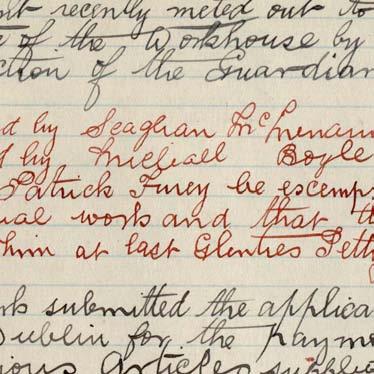 recently meted out to
of the Workhouse by
ction of the Guardian
d by Seaghan McMenami
d by Micheall Boyle
Patrick Furey be exemp
ual work and that th
him at last Glenties Petty
submitted the applica
Dublin for the Payme
ious Articles supplie